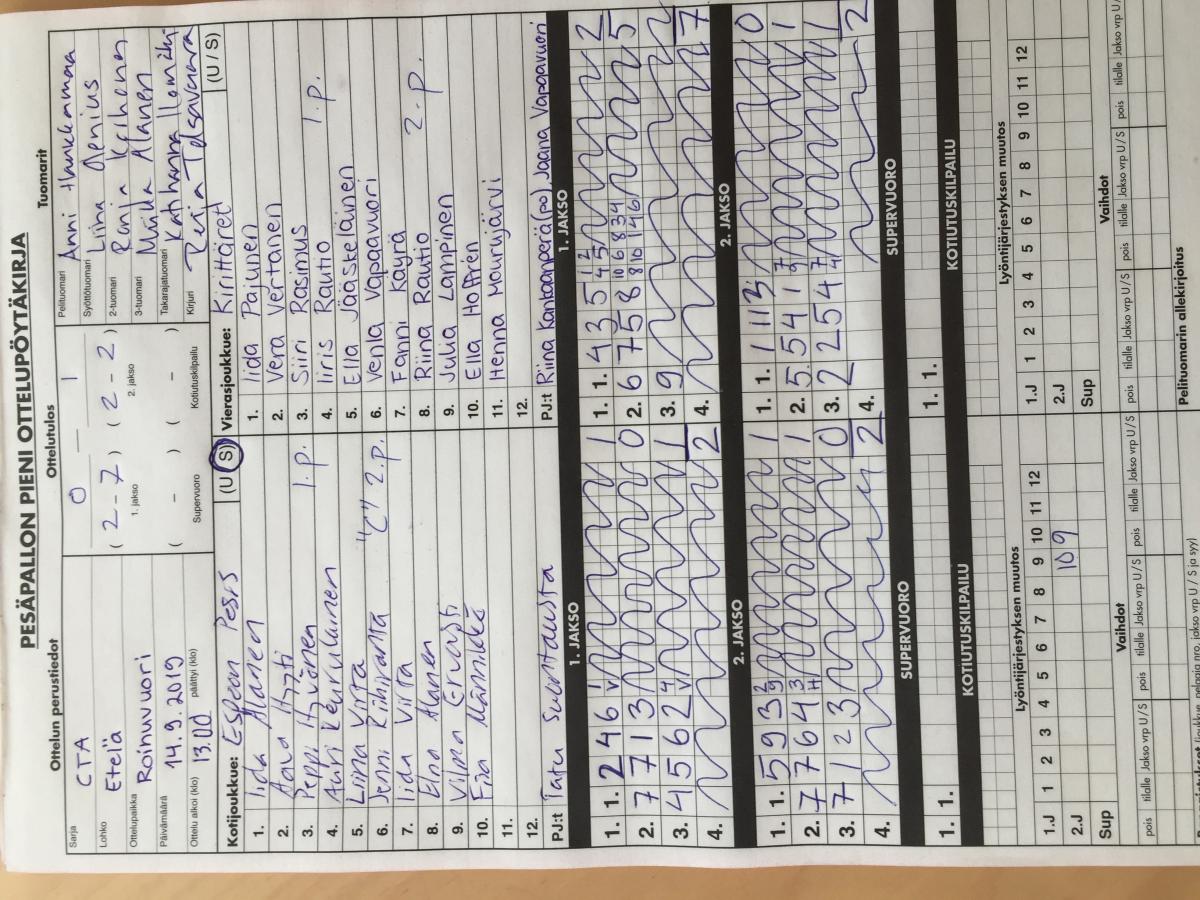 PESÄPALLON PIENI OTTELUPÖYTÄKIRJA
Ottelun perustiedot
Ottelutulos
Tuomarit
Sarja CTA
Lohko Etelä
Ottelupaikka Roinunvuori
Päivämäärä 14.9.2019
Ottelu alkoi (klo) 13.00 päättyi (klo)
0 — 1
( 2 - 7 ) ( 2 - 2 )
1. jakso 2. jakso
( - ) ( - )
Supervuoro Kotiutuskilpailu
Pelituomari Anni
Syöttötuomari Liina
2-tuomari
3-tuomari Alanen
Takarajatuomari Katihanna
Kirjuri
Kotijoukkue: Espoon Pesis (U / S)
1. Iida Alanen
2. Aava Hytti
3. Peppi Hyvönen 1.p.
4. Auri Keurulainen
5. Liina Virta
6. Jenni Riihiranta "C" 2.p.
7. Iida Virta
8. Elna Alanen
9. Vilma Ervasti
10.
11.
12.
PJ:t Tatu
Vierasjoukkue: Kirittäret (U / S)
1. Iida Pajunen
2. Veera Vertanen
3. Siiri Rasimus 1.p.
4. Iiris Rautio
5. Ella Jääskeläinen
6. Venla Vapaavuori
7. Fanni Käyrä
8. Riina Rautio 2.p.
9. Julia Lampinen
10. Ella Hoffrén
11. Henna Mourujärvi
12.
PJ:t Riina Kankaanperä(po) Jaana Vapaavuori
1. JAKSO
1. 1. 2 4 6 1
2. 7 7 1 3 0
3. 4 5 6 2 1
4. 2
1. JAKSO
1. 1. 4 3 5 2
2. 6 7 5 8 5
3. 9
4. 7
2. JAKSO
1. 1. 5 9 3 1
2. 7 7 6 4 1
3. 7 1 2 3 0
4. 2
2. JAKSO
1. 1. 1 11 0
2. 5 5 4 1 1
3. 2 2 5 4 1
4. 2
SUPERVUORO
1. 1.
SUPERVUORO
1. 1.
KOTIUTUSKILPAILU
KOTIUTUSKILPAILU
Lyöntijärjestyksen muutos
1 2 3 4 5 6 7 8 9 10 11 12
1.J
2.J 10 9
Sup
Lyöntijärjestyksen muutos
1 2 3 4 5 6 7 8 9 10 11 12
1.J
2.J
Sup
Vaihdot
pois tilalle Jakso vrp U / S pois tilalle Jakso vrp U / S pois tilalle Jakso vrp U / S
Vaihdot
pois tilalle Jakso vrp U / S pois tilalle Jakso vrp U / S pois tilalle Jakso vrp
Pelituomarin allekirjoitus